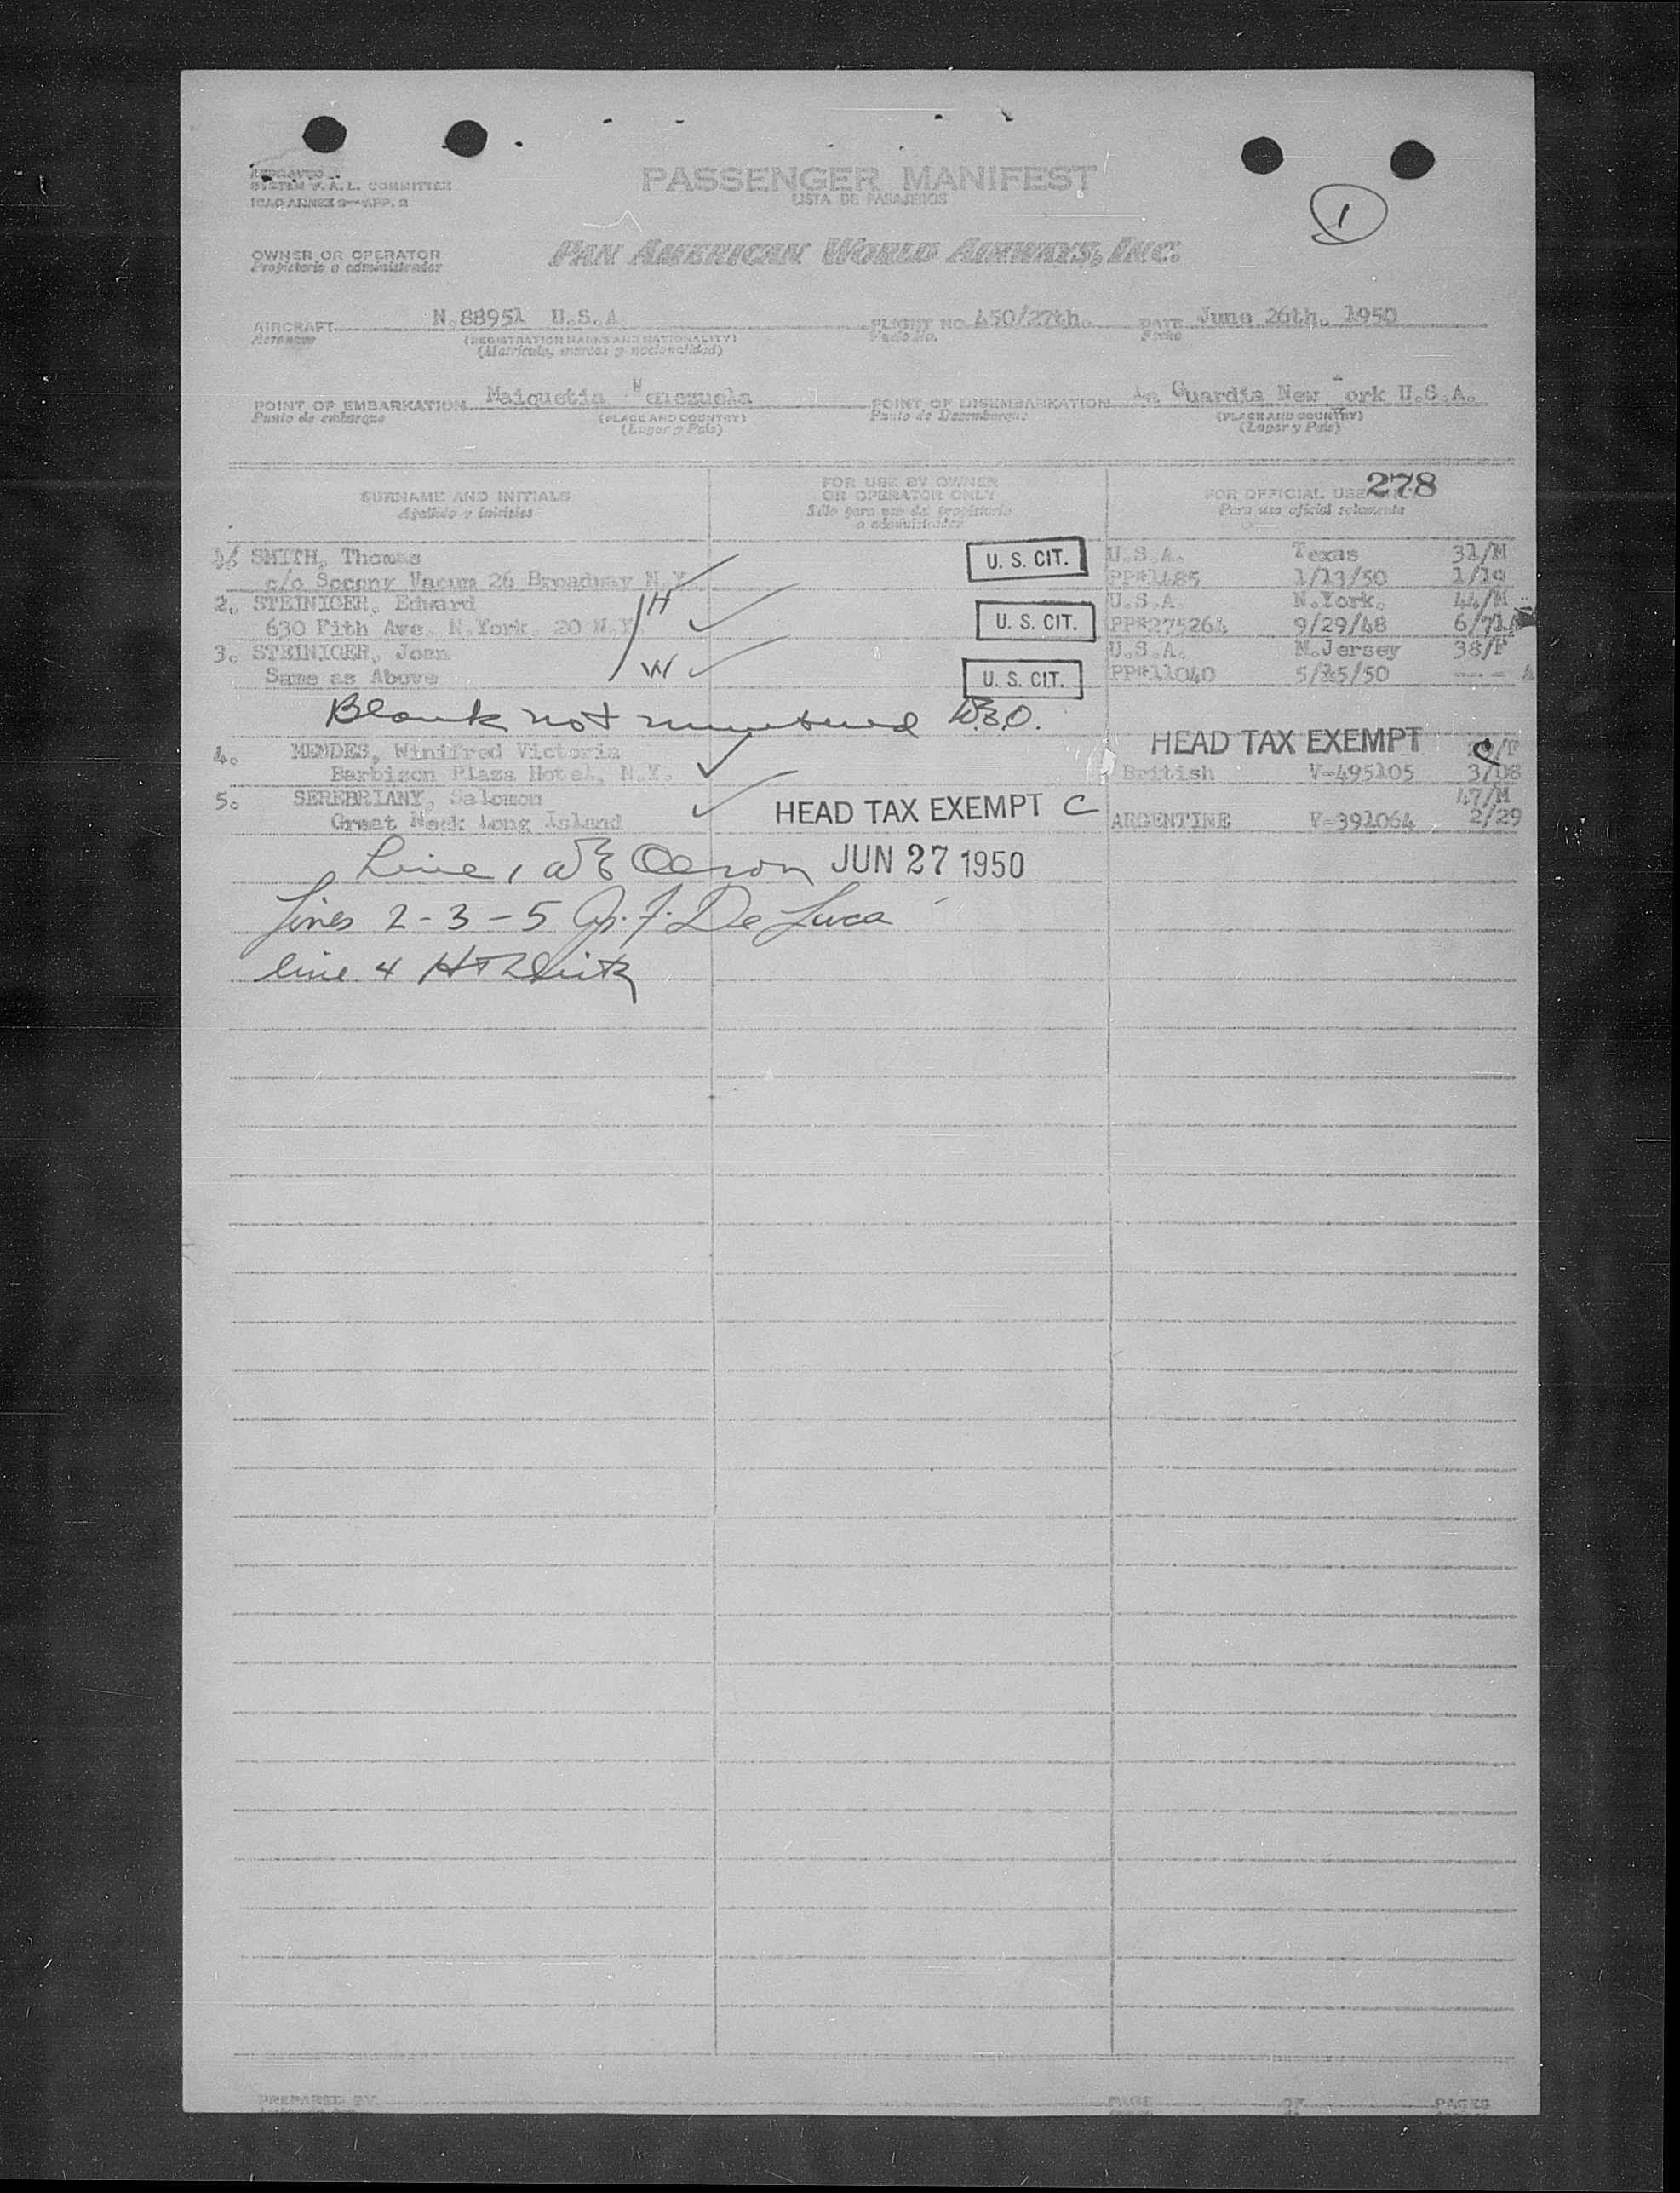 SYSTEM F.A.L. COMMITTEE
ICAO ANNEX 9—APP. 2
PASSENGER MANIFEST
LISTA DE PASAJEROS
1
OWNER OR OPERATOR
Propietario o administrador
PAN AMERICAN WORLD AIRWAYS, INC.
AIRCRAFT N.88951 U.S.A. FLIGHT NO. 450/27th. DATE June 26th. 1950
Aeronave (REGISTRATION MARKS AND NATIONALITY) Vuelo No. Fecha
(Matricula, marcas y nacionalidad)
POINT OF EMBARKATION Maiquetia Venezuela POINT OF DISEMBARKATION La Guardia New York U.S.A.
Punto de embarque (PLACE AND COUNTRY) Punto de Desembarque (PLACE AND COUNTRY)
(Lugar y Pais) (Lugar y Pais)
278
SURNAME AND INITIALS FOR USE BY OWNER OR OPERATOR ONLY FOR OFFICIAL USE
Apellido e iniciales Sólo para uso del propietario o administrador Para uso oficial solamente
1. SMITH, Thomas U. S. CIT. U.S.A. Texas 31/M
c/o Socony Vacum 26 Broadway N.Y. PP#1485 1/13/50 1/10
2. STEINIGER, Edward H U. S. CIT. U.S.A. N.York. 44/M
630 Fith Ave. N.York. 20 N.Y PP#275264 9/29/48
3. STEINIGER, Joan W U. S. CIT. U.S.A. N.Jersey 38/F
Same as Above PP#11040 5/25/50 ---
Blank not numbered W.E.O.
4. MENDES, Winifred Victoria HEAD TAX EXEMPT C
Barbizon Plaza Hotel, N.Y. British V-495105 3/08
5. SEREBRIANY, Salomon HEAD TAX EXEMPT C 47/M
Great Neck Long Island ARGENTINE V-391064 2/29
Line 1 WE Olson JUN 27 1950
Lines 2-3-5 De Luca
line 4
PREPARED BY PAGE OF PAGES